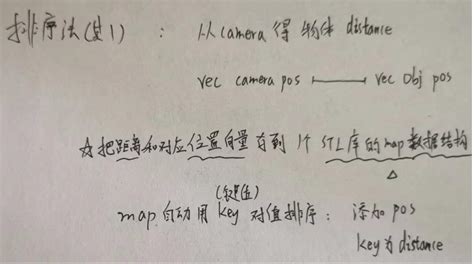 排序法(其1) : 从camera得物体 distance
vec camera pos ⟼ vec Obj pos
☆把距离和对应位置向量存到1个STL库的map数据结构
(键值)
map自动用key对值排序: 添加pos
key为distance